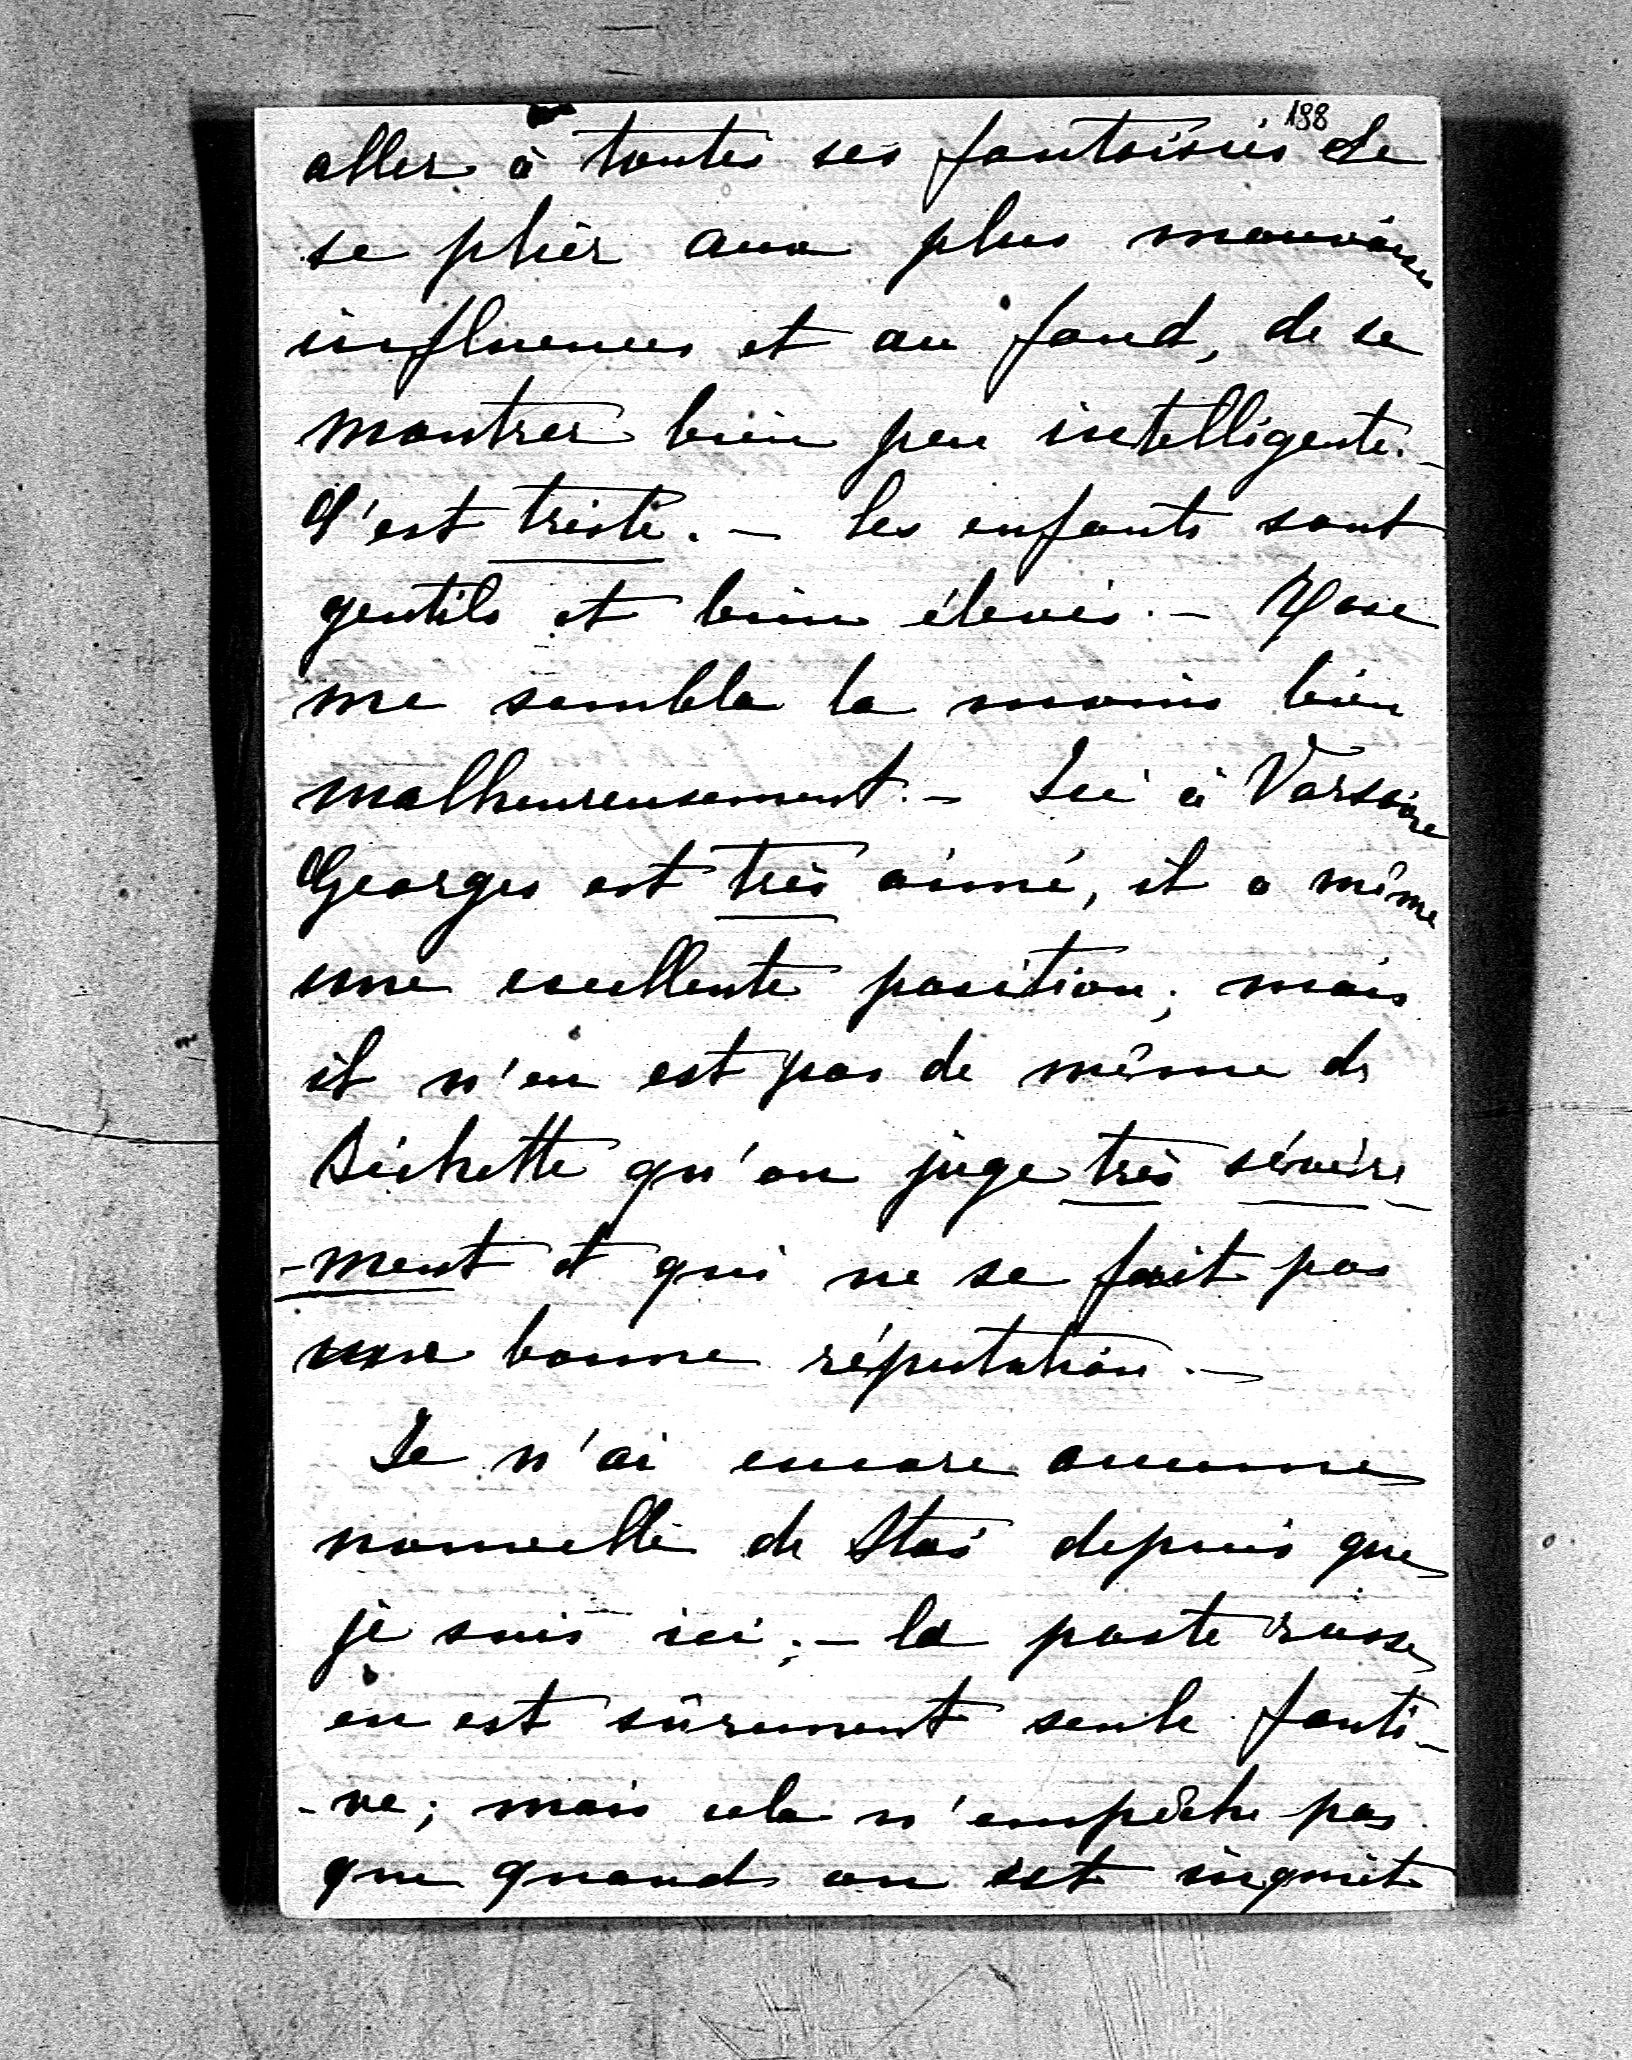 188
aller à toutes ses fantaisies de
se plier aux plus mauvaises
influences et au fond, de se
montrer bien peu intelligente. -
C'est triste. - les enfants sont
gentils et bien élevés. - Rose
me sembla la moins bien
malheureusement. - Ici à Varsovie
Georges est très aimé, il a même
une excellente position; mais
il n'en est pas de même de
Bichette qu'on juge très sévère-
-ment et qui ne se fait pas
une bonne réputation. -
Je n'ai encore aucune
nouvelle de Stas depuis que
je suis ici; - la poste russe
en est sûrement seule fauti-
-ve; mais cela n'empêche pas
que quand on est inquiet